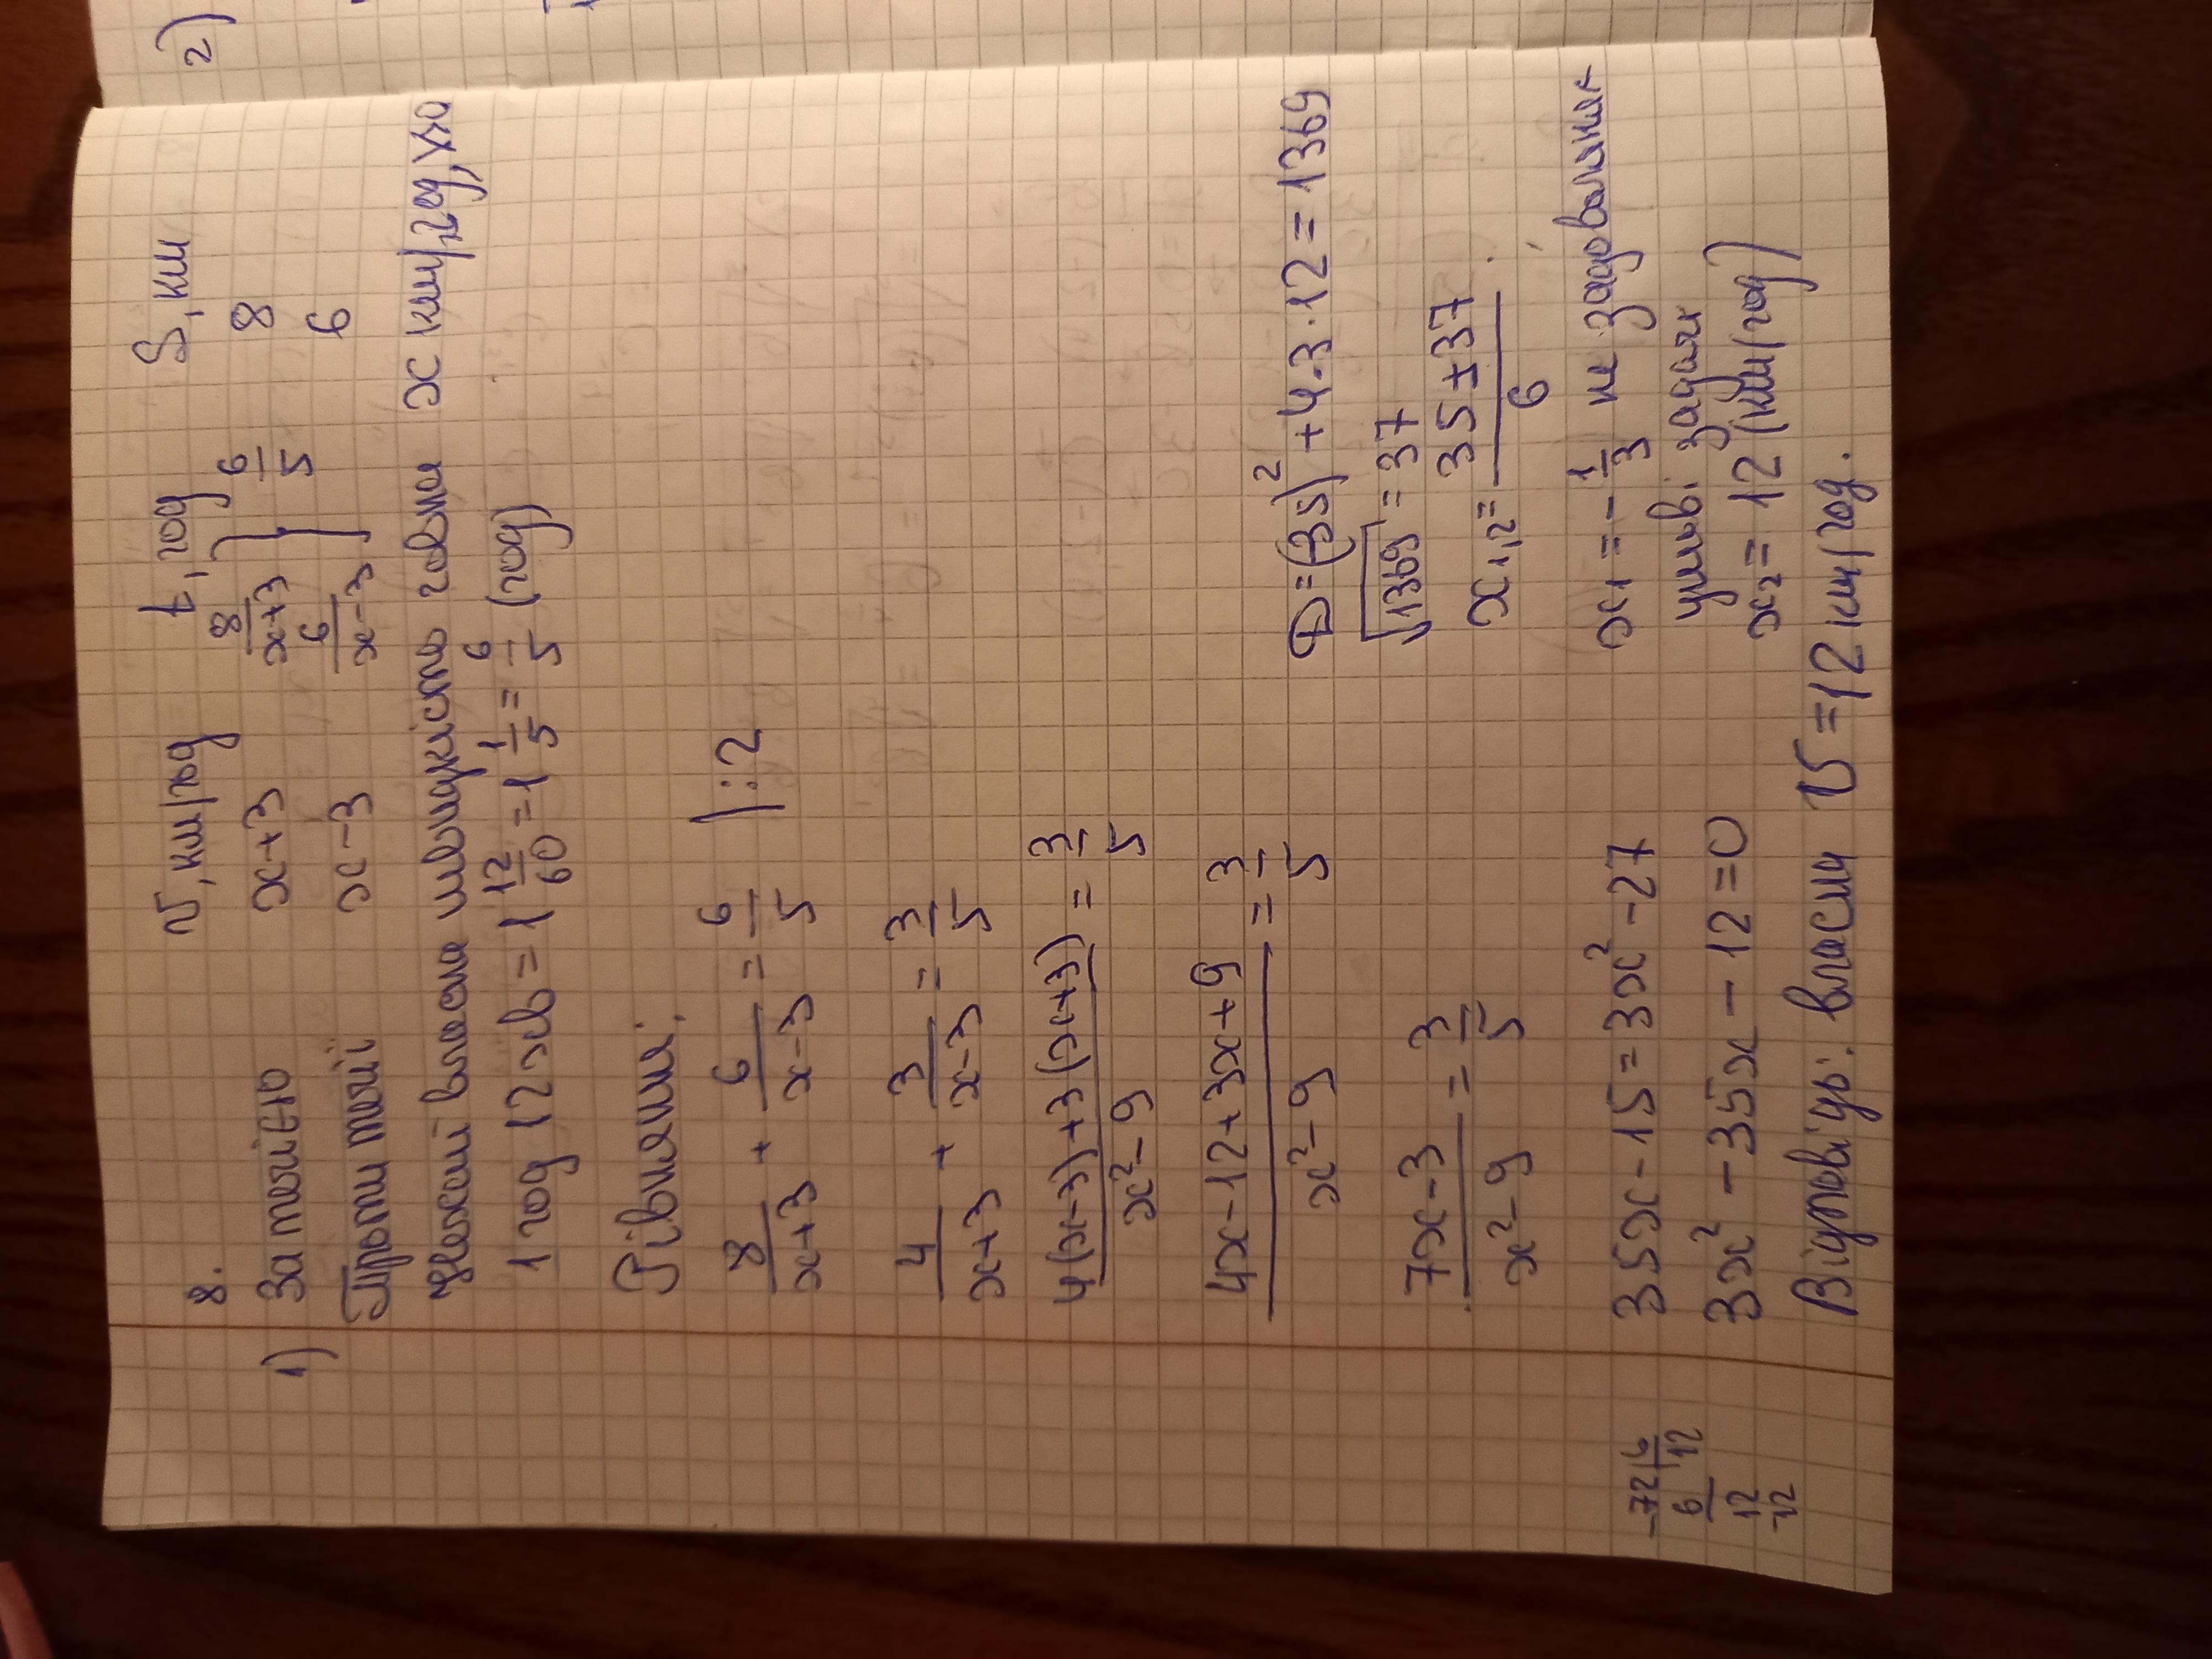 2)
8.
v, км/год t, год S, км
1) За течією x+3 8/(x+3) } 6/5 8
Проти течії x-3 6/(x-3) 6
Нехай власна швидкість човна x км/год, x>0
1 год 12 хв = 1 12/60 = 1 1/5 = 6/5 (год)
Рівняння:
8/(x+3) + 6/(x-3) = 6/5 |:2
4/(x+3) + 3/(x-3) = 3/5
(4(x-3)+3(x+3))/(x²-9) = 3/5
(4x-12+3x+9)/(x²-9) = 3/5
(7x-3)/(x²-9) = 3/5
35x-15=3x²-27
3x²-35x-12=0
D=(35)²+4·3·12=1369
√1369=37
x1,2=(35±37)/6
x1=-1/3 не задовольняє
умові задачі
x2=12 (км/год)
Відповідь: власна V=12 км/год.
-72|6
6 12
12
-12